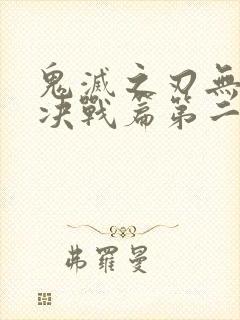 鬼滅之刃無
決戰篇第二
弗羅曼